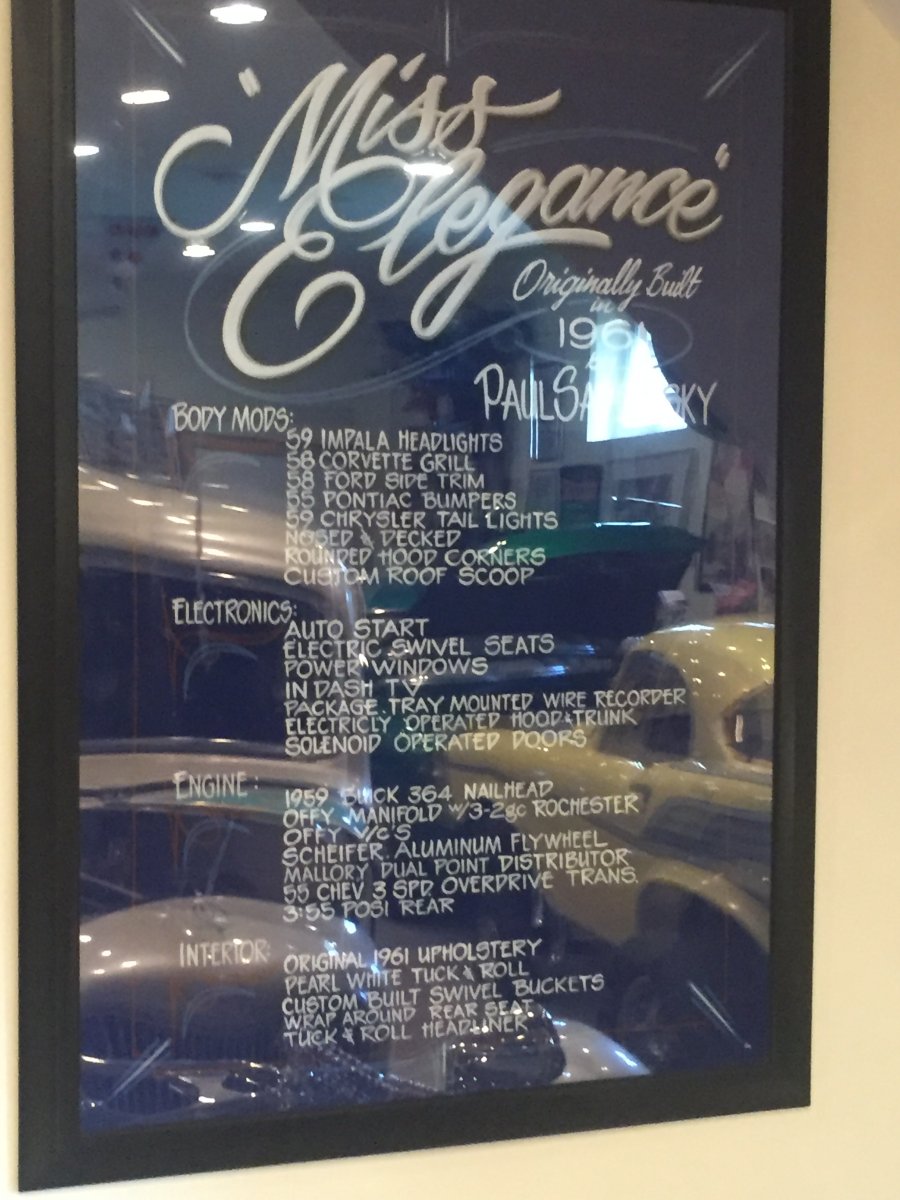 "Miss
Elegance"
Originally Built
in
1961
PAUL
BODY MODS:
59 IMPALA HEADLIGHTS
58 CORVETTE GRILL
58 FORD SIDE TRIM
55 PONTIAC BUMPERS
59 CHRYSLER TAIL LIGHTS
NOSED & DECKED
ROUNDED HOOD CORNERS
CUSTOM ROOF SCOOP
ELECTRONICS:
AUTO START
ELECTRIC SWIVEL SEATS
POWER WINDOWS
IN DASH TV
PACKAGE TRAY MOUNTED WIRE RECORDER
ELECTRICLY OPERATED HOOD & TRUNK
SOLENOID OPERATED DOORS
ENGINE:
1959 BUICK 364 NAILHEAD
OFFY MANIFOLD w/3-2gc ROCHESTER
OFFY V/C'S
SCHEIFER ALUMINUM FLYWHEEL
MALLORY DUAL POINT DISTRIBUTOR
55 CHEV 3 SPD OVERDRIVE TRANS.
3:55 POSI REAR
INTERIOR:
ORIGINAL 1961 UPHOLSTERY
PEARL WHITE TUCK & ROLL
CUSTOM BUILT SWIVEL BUCKETS
WRAP AROUND REAR SEAT
TUCK & ROLL HEADLINER